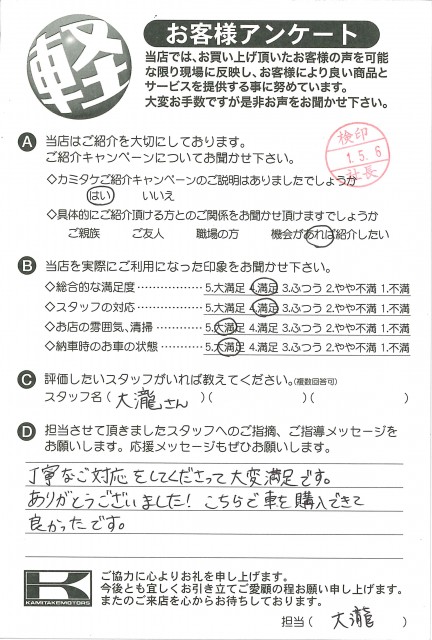 軽
お客様アンケート
当店では、お買い上げ頂いたお客様の声を可能
な限り現場に反映し、お客様により良い商品と
サービスを提供する事に努めています。
大変お手数ですが是非お声をお聞かせ下さい。
検印
1.5.6
社長
A 当店はご紹介を大切にしております。
ご紹介キャンペーンについてお聞かせ下さい。
◇カミタケご紹介キャンペーンのご説明はありましたでしょうか
はい いいえ
◇具体的にご紹介頂ける方とのご関係をお聞かせ頂けますでしょうか
ご親族 ご友人 職場の方 機会があれば紹介したい
B 当店を実際にご利用になった印象をお聞かせ下さい。
◇総合的な満足度……………5.大満足 4.満足 3.ふつう 2.やや不満 1.不満
◇スタッフの対応……………5.大満足 4.満足 3.ふつう 2.やや不満 1.不満
◇お店の雰囲気、清掃………5.大満足 4.満足 3.ふつう 2.やや不満 1.不満
◇納車時のお車の状態………5.大満足 4.満足 3.ふつう 2.やや不満 1.不満
C 評価したいスタッフがいれば教えてください。(複数回答可)
スタッフ名(大瀧さん)( )( )
D 担当させて頂きましたスタッフへのご指摘、ご指導メッセージを
お願いします。応援メッセージもぜひお願いします。
丁寧なご対応をしてくださって大変満足です。
ありがとうございました!こちらで車を購入できて
良かったです。
K
KAMITAKEMOTORS
ご協力に心よりお礼を申し上げます。
今後とも宜しくお引き立てご愛顧の程お願い申し上げます。
またのご来店を心からお待ちしております。
担当(大瀧)